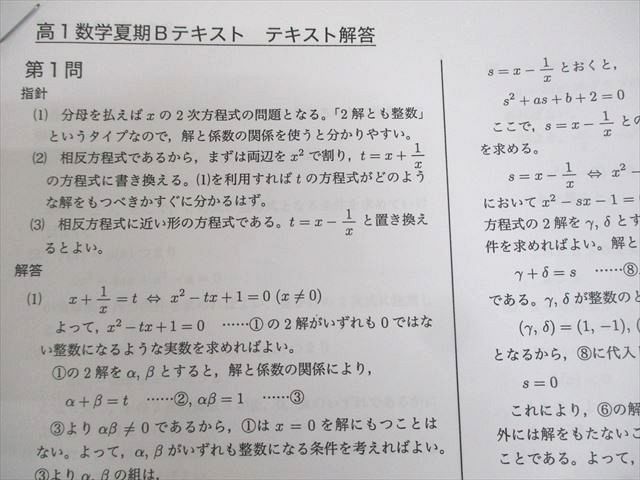 高1数学夏期Bテキスト　テキスト解答
第1問
指針
(1) 分母を払えば x の2次方程式の問題となる。「2解とも整数」
というタイプなので，解と係数の関係を使うと分かりやすい。
(2) 相反方程式であるから，まずは両辺を x² で割り，t = x + 1/x
の方程式に書き換える。(1)を利用すれば t の方程式がどのよう
な解をもつべきかすぐに分かるはず。
(3) 相反方程式に近い形の方程式である。t = x − 1/x と置き換え
るとよい。
解答
(1) x + 1/x = t ⇔ x² − tx + 1 = 0 (x ≠ 0)
よって，x² − tx + 1 = 0 ……① の2解がいずれも 0 ではな
い整数になるような実数を求めればよい。
①の2解を α, β とすると，解と係数の関係により，
α + β = t ……②, αβ = 1 ……③
③より αβ ≠ 0 であるから，①は x = 0 を解にもつことは
ない。よって，α, β がいずれも整数になる条件を考えればよい。
③より α, β の組は，
s = x − 1/x とおくと，
s² + as + b + 2 = 0
ここで，s = x − 1/x との
を求める。
s = x − 1/x ⇔ x² −
において x² − sx − 1 =
方程式の2解を γ, δ とす
件を求めればよい。解と
γ + δ = s ……⑧
である。γ, δ が整数のと
(γ, δ) = (1, −1), (
となるから，⑧に代入し
s = 0
これにより，⑥の解
外には解をもたないこ
ことである。よって，